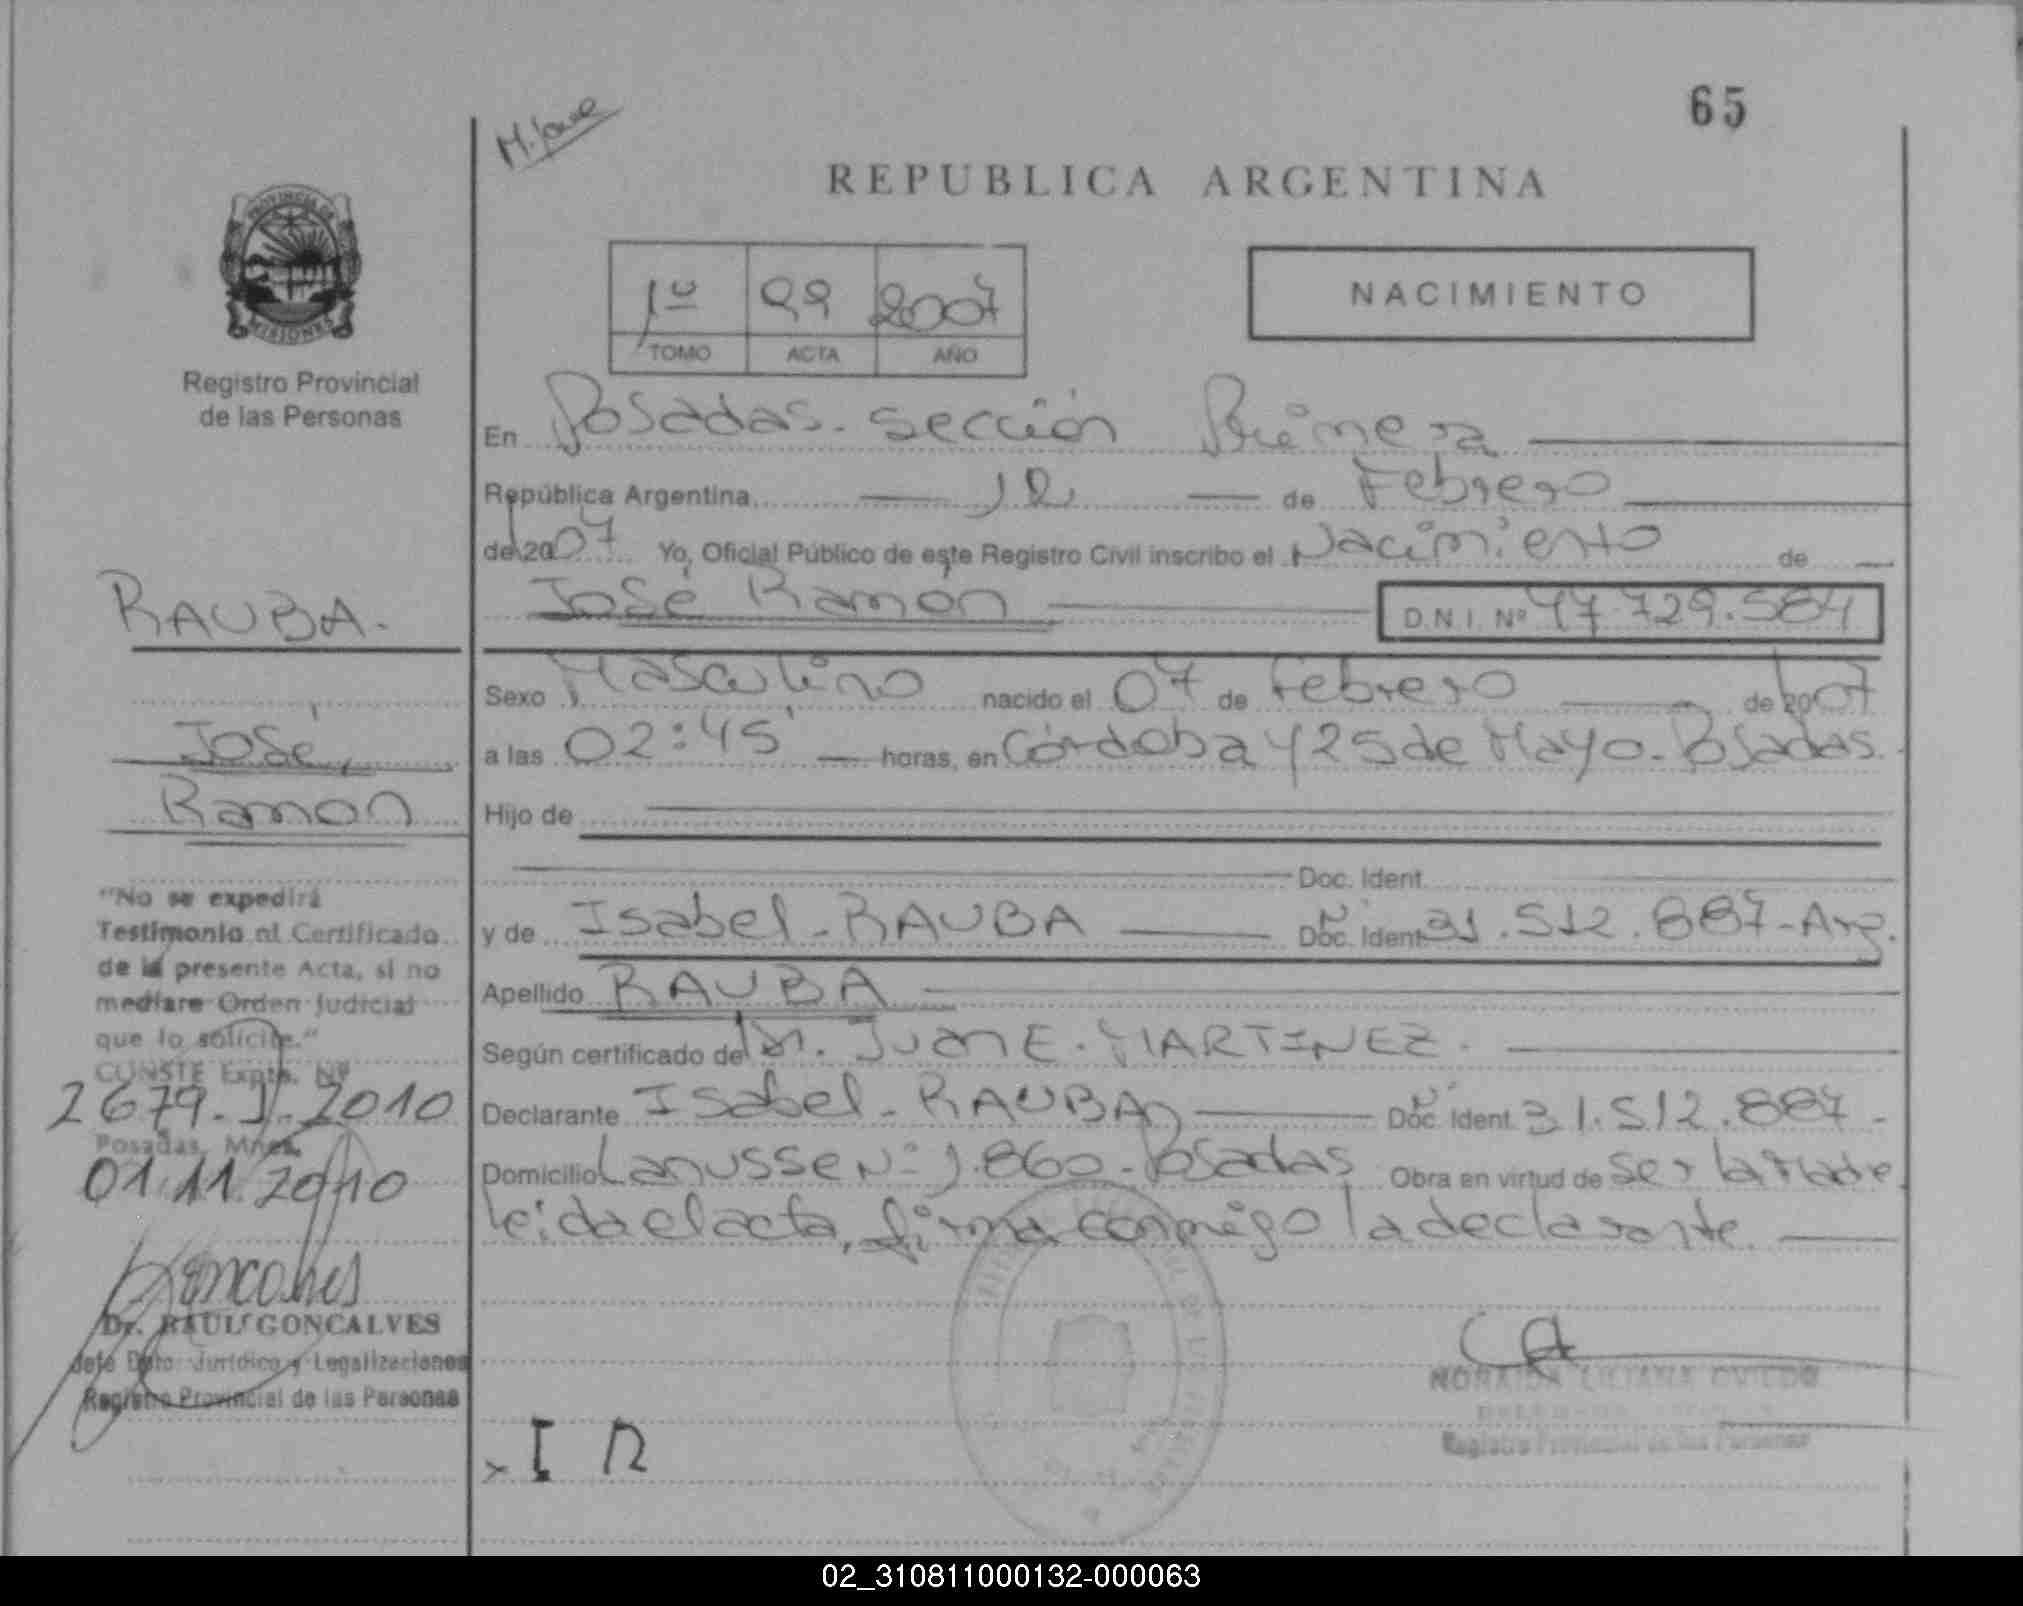 65
M. Jave
REPUBLICA ARGENTINA
PROVINCIA DE
MISIONES
Registro Provincial
de las Personas
1º 99 2007
TOMO ACTA AÑO
NACIMIENTO
En Posadas. sección Primera
República Argentina 12 de Febrero
del 2007 Yo, Oficial Público de este Registro Civil inscribo el Nacimiento de
José Ramón D.N.I. Nº 47.729.584
Sexo Masculino nacido el 07 de Febrero de 2007
a las 02:45' horas, en Córdoba y 25 de Mayo. Posadas.
Hijo de
Doc. Ident.
y de Isabel - RAUBA Doc. Ident. Nº 31.512.887-Arg.
Apellido RAUBA
Según certificado del Dr. Juan E. MARTINEZ.
Declarante Isabel - RAUBA Doc. Ident. Nº 31.512.887-
Domicilio Lanusse Nº 1.860- Posadas Obra en virtud de ser la Madre
leida el acta, firma conmigo la declarante.
RAUBA.
José
Ramón
"No se expedirá
Testimonio al Certificado
de la presente Acta, si no
mediare Orden Judicial
que lo solicite."
CONSTE Expte. Nº
2679-J-2010
Posadas, Mnes.
01.11.2010
Goncalves
Dr. RAUL GONCALVES
Jefe Dpto. Jurídico y Legalizaciones
Registro Provincial de las Personas
x I R
NORAIDA LILIANA OVIEDO
Registro Provincial de las Personas
02_310811000132-000063